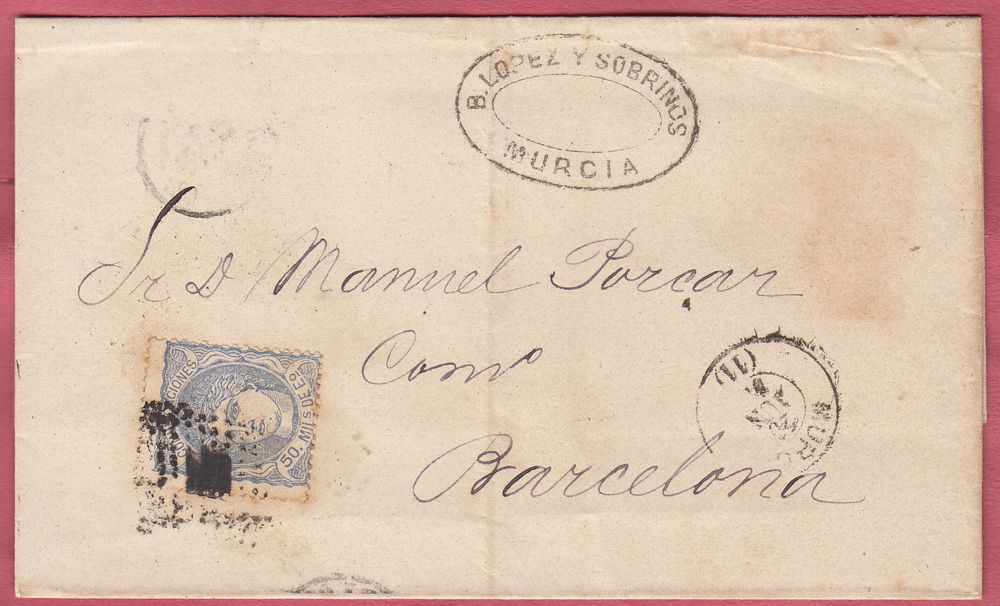 B. LOPEZ Y SOBRINOS
MURCIA
Sr D Manuel Porcar
Comº
Barcelona
50. MILs DE Eo
MUR
(11)